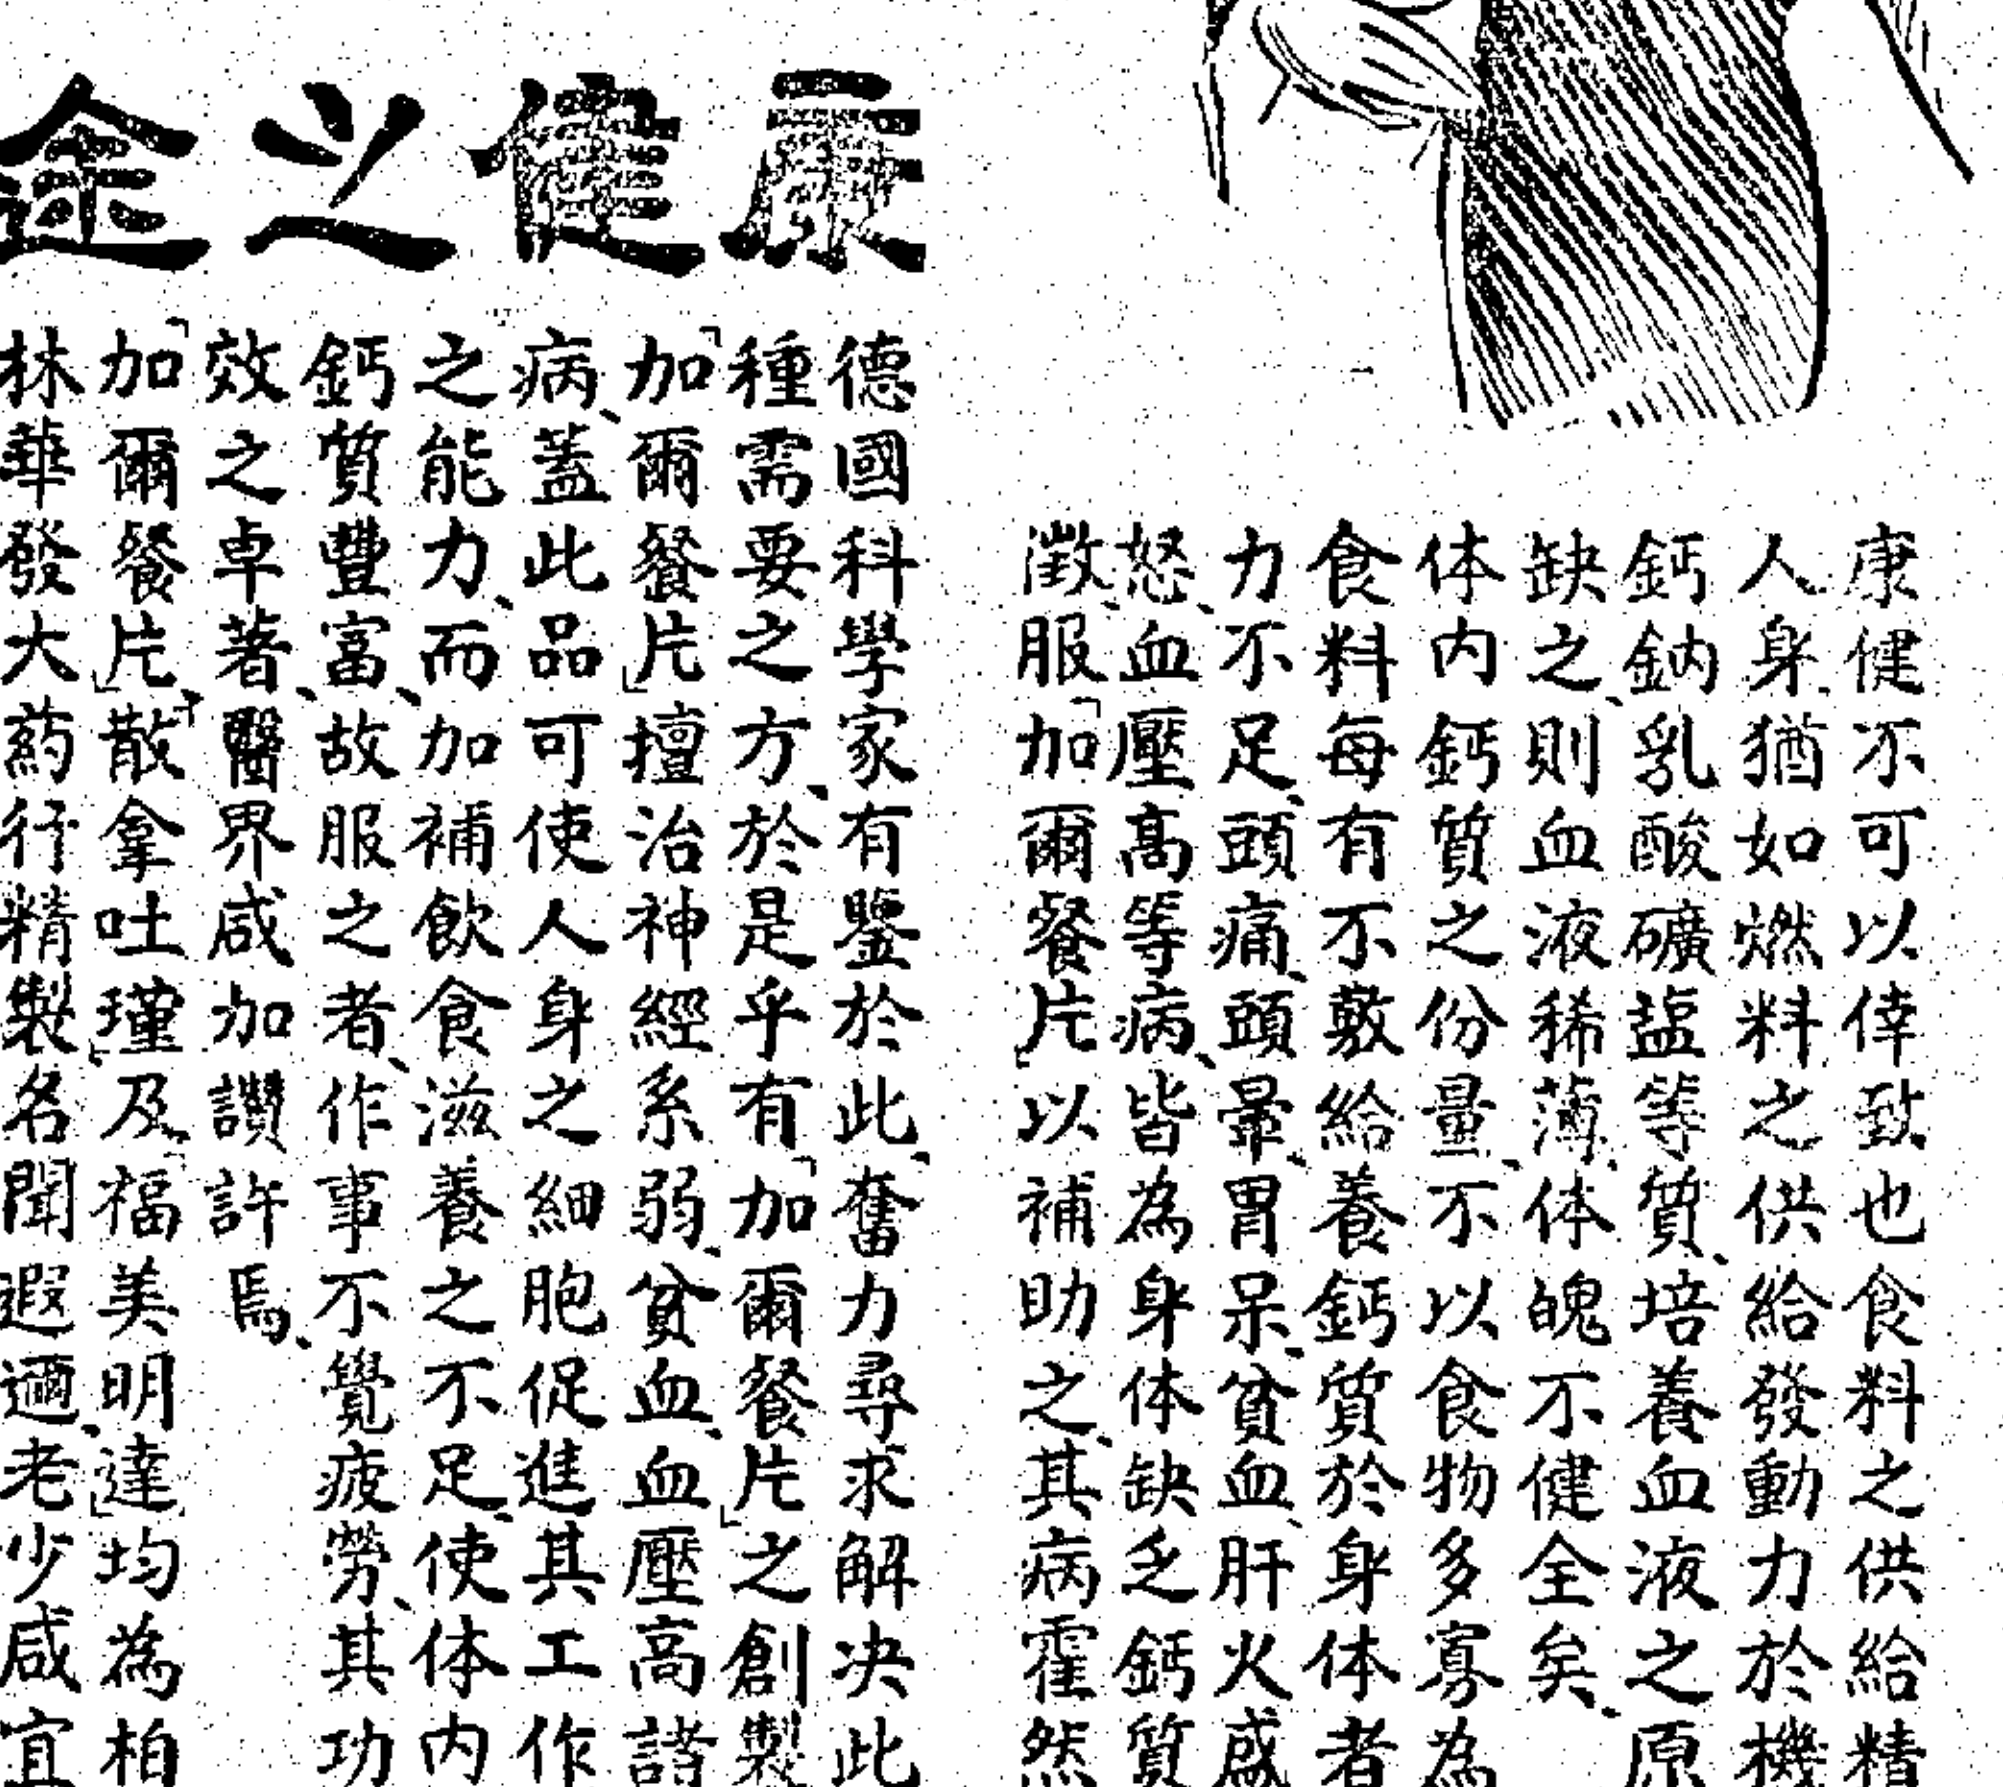 康健之途
康健不可以倖致也食料之供給精
人身猶如燃料之供給發動力於機
鈣鈉乳酸礦塩等質、培養血液之原
缺之、則血液稀薄、体魄不健全矣、
体內鈣質之份量、不以食物多寡為
食料每有不敷給養鈣質於身体者
力不足、頭痛、頭暈、胃呆、貧血、肝火盛
怒、血壓高等病、皆為身体缺乏鈣質
徵、服「加爾餐片」以補助之、其病霍然
德國科學家有鑒於此、奮力尋求解决此
種需要之方、於是乎有「加爾餐片」之創製
「加爾餐片」擅治神經系弱、貧血、血壓高諸
病、蓋此品可使人身之細胞促進其工作
之能力、而加補飲食滋養之不足、使体內
鈣質豐富、故服之者、作事不覺疲勞、其功
效之卓著、醫界咸加讚許焉、
「加爾餐片」、「散拿吐瑾」及「福美明達」均為柏
林華發大葯行精製、名聞遐邇、老少咸宜